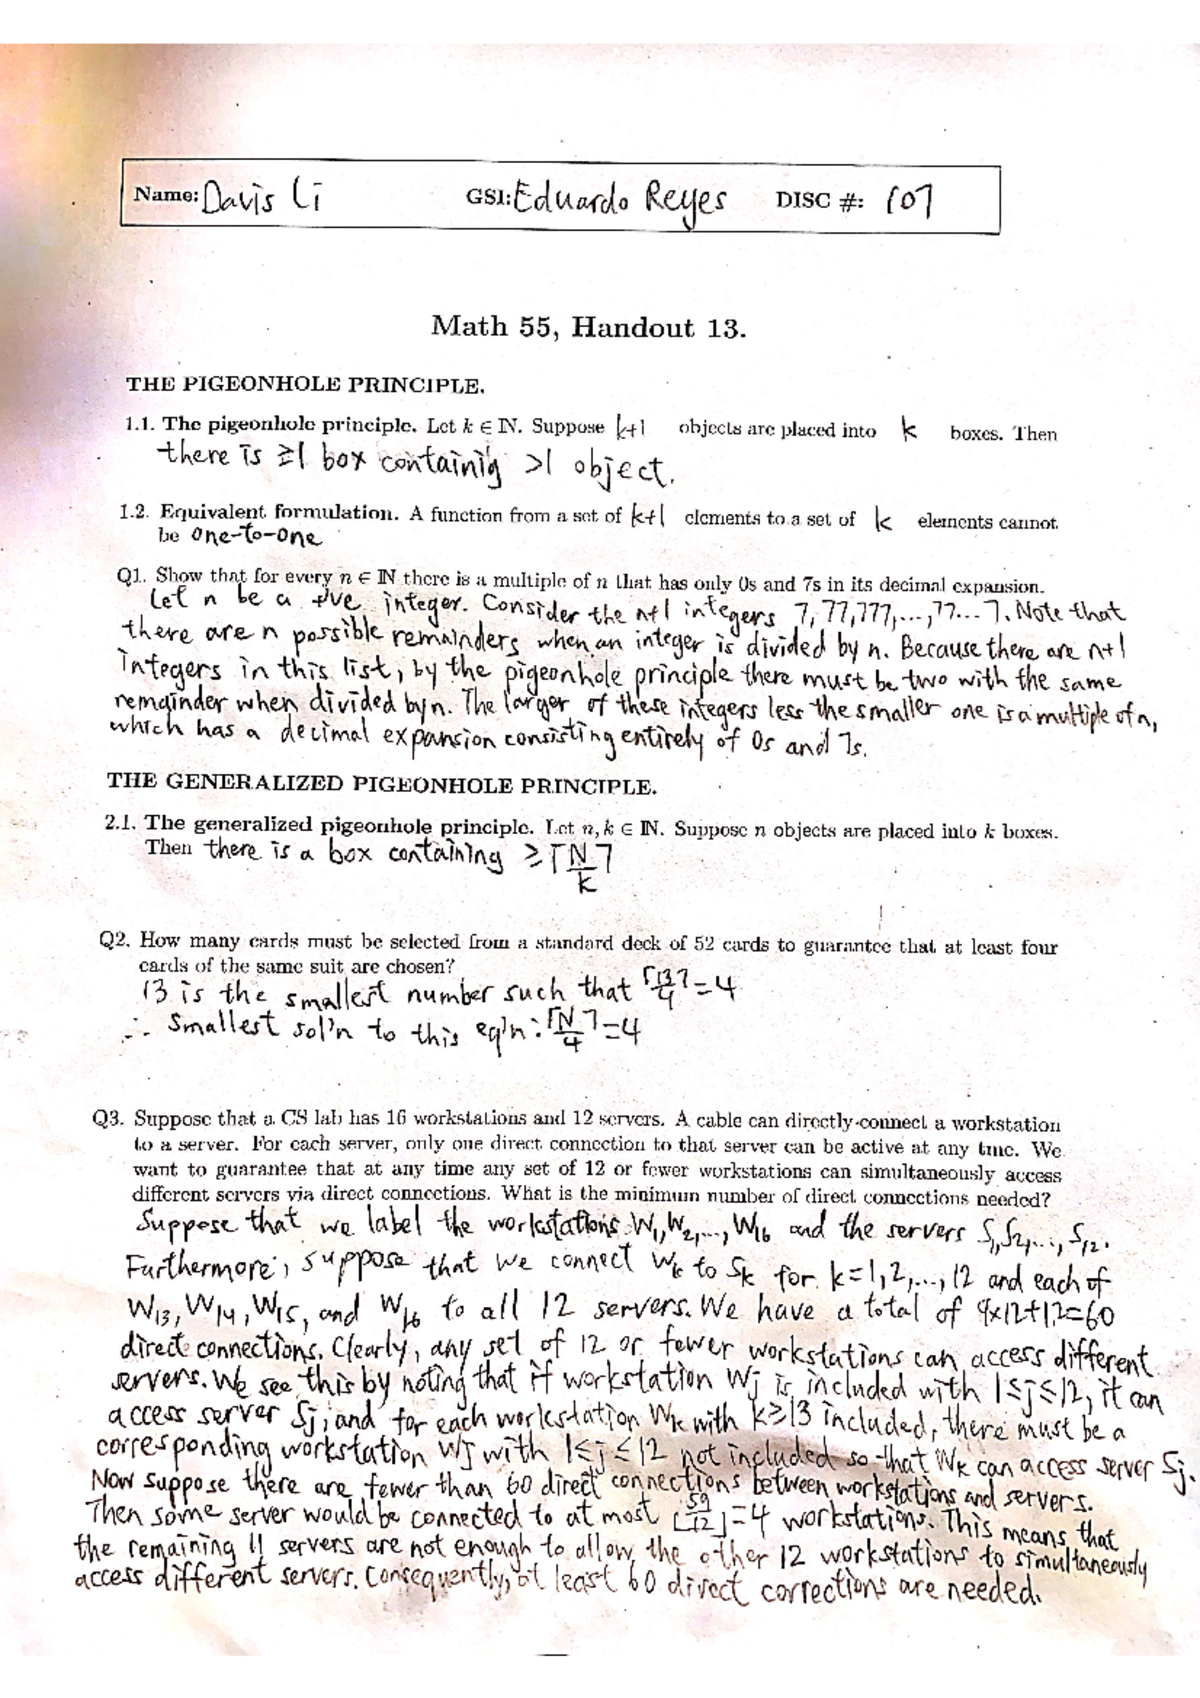 Name: Davis Li GSI: Eduardo Reyes DISC #: 107
Math 55, Handout 13.
THE PIGEONHOLE PRINCIPLE.
1.1. The pigeonhole principle. Let k ∈ ℕ. Suppose k+1 objects are placed into k boxes. Then
there is ≥1 box containig >1 object.
1.2. Equivalent formulation. A function from a set of k+1 elements to a set of k elements cannot
be one-to-one
Q1. Show that for every n ∈ ℕ there is a multiple of n that has only 0s and 7s in its decimal expansion.
Let n be a +ve integer. Consider the n+1 integers 7, 77, 777, ..., 77...7. Note that
there are n possible remainders when an integer is divided by n. Because there are n+1
integers in this list, by the pigeonhole principle there must be two with the same
remainder when divided by n. The larger of these integers less the smaller one is a multiple of n,
which has a decimal expansion consisting entirely of 0s and 7s.
THE GENERALIZED PIGEONHOLE PRINCIPLE.
2.1. The generalized pigeonhole principle. Let n, k ∈ ℕ. Suppose n objects are placed into k boxes.
Then there is a box containing ≥ ⌈N/k⌉
Q2. How many cards must be selected from a standard deck of 52 cards to guarantee that at least four
cards of the same suit are chosen?
13 is the smallest number such that ⌈13/4⌉=4
∴ Smallest sol'n to this eq'n: ⌈N/4⌉=4
Q3. Suppose that a CS lab has 16 workstations and 12 servers. A cable can directly connect a workstation
to a server. For each server, only one direct connection to that server can be active at any time. We
want to guarantee that at any time any set of 12 or fewer workstations can simultaneously access
different servers via direct connections. What is the minimum number of direct connections needed?
Suppose that we label the workstations W1, W2, ..., W16 and the servers S1, S2, ..., S12.
Furthermore, suppose that we connect Wk to Sk for k=1,2,...,12 and each of
W13, W14, W15, and W16 to all 12 servers. We have a total of 4x12+12=60
direct connections. Clearly, any set of 12 or fewer workstations can access different
servers. We see this by noting that if workstation Wj is included with 1≤j≤12, it can
access server Sj, and for each workstation Wk with k≥13 included, there must be a
corresponding workstation Wj with 1≤j≤12 not included so that Wk can access server Sj.
Now suppose there are fewer than 60 direct connections between workstations and servers.
Then some server would be connected to at most ⌊59/12⌋=4 workstations. This means that
the remaining 11 servers are not enough to allow the other 12 workstations to simultaneously
access different servers. Consequently, at least 60 direct corrections are needed.